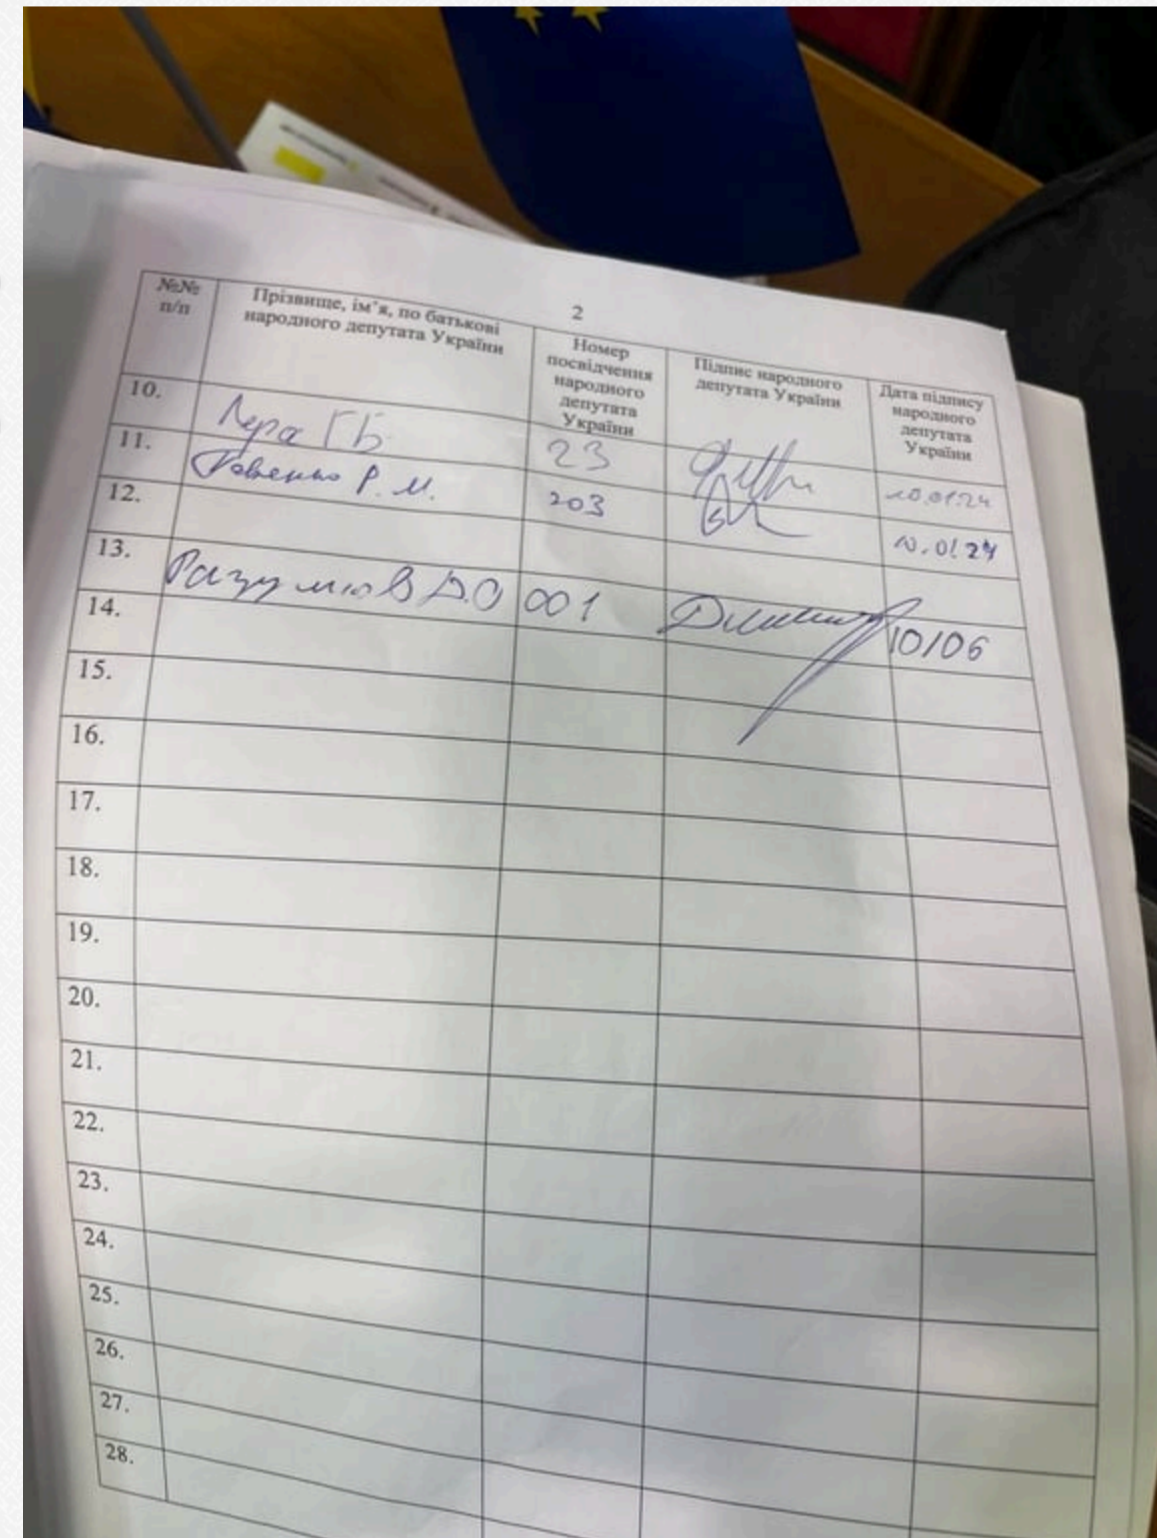 2
№№
п/п
Прізвище, ім’я, по батькові
народного депутата України
Номер
посвідчення
народного
депутата
України
Підпис народного
депутата України
Дата підпису
народного
депутата
України
10. Лера ГБ 23 10.01.24
11. Говенко Р. М. 203 10.01.24
12.
13. Разумков Д.О 001 10/06
14.
15.
16.
17.
18.
19.
20.
21.
22.
23.
24.
25.
26.
27.
28.